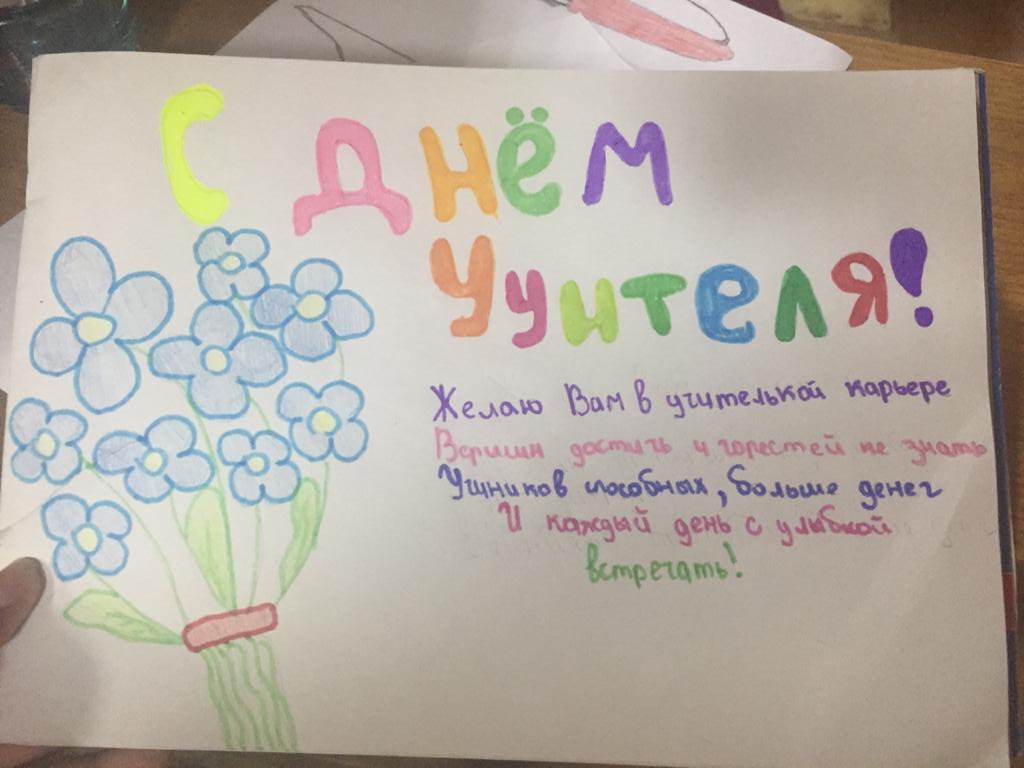 С ДНЁМ
УЧИТЕЛЯ!
Желаю Вам в учителькой карьере
Вершин достичь и горестей не знать
Ущников способных, больше денег
И каждый день с улыбкой
встречать!